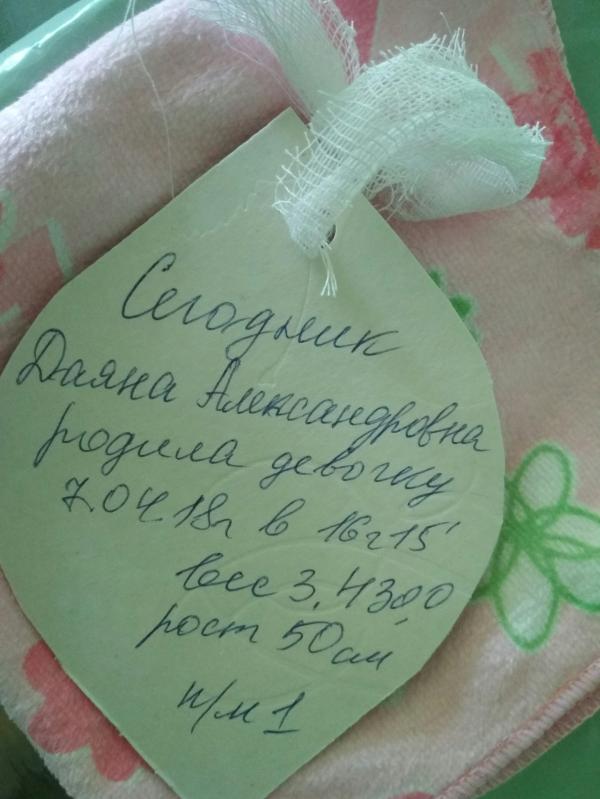 Сегодник
Даяна Александровна
родила девочку
7.04.18г в 16ч15'
вес 3.4300
рост 50см
п/м 1